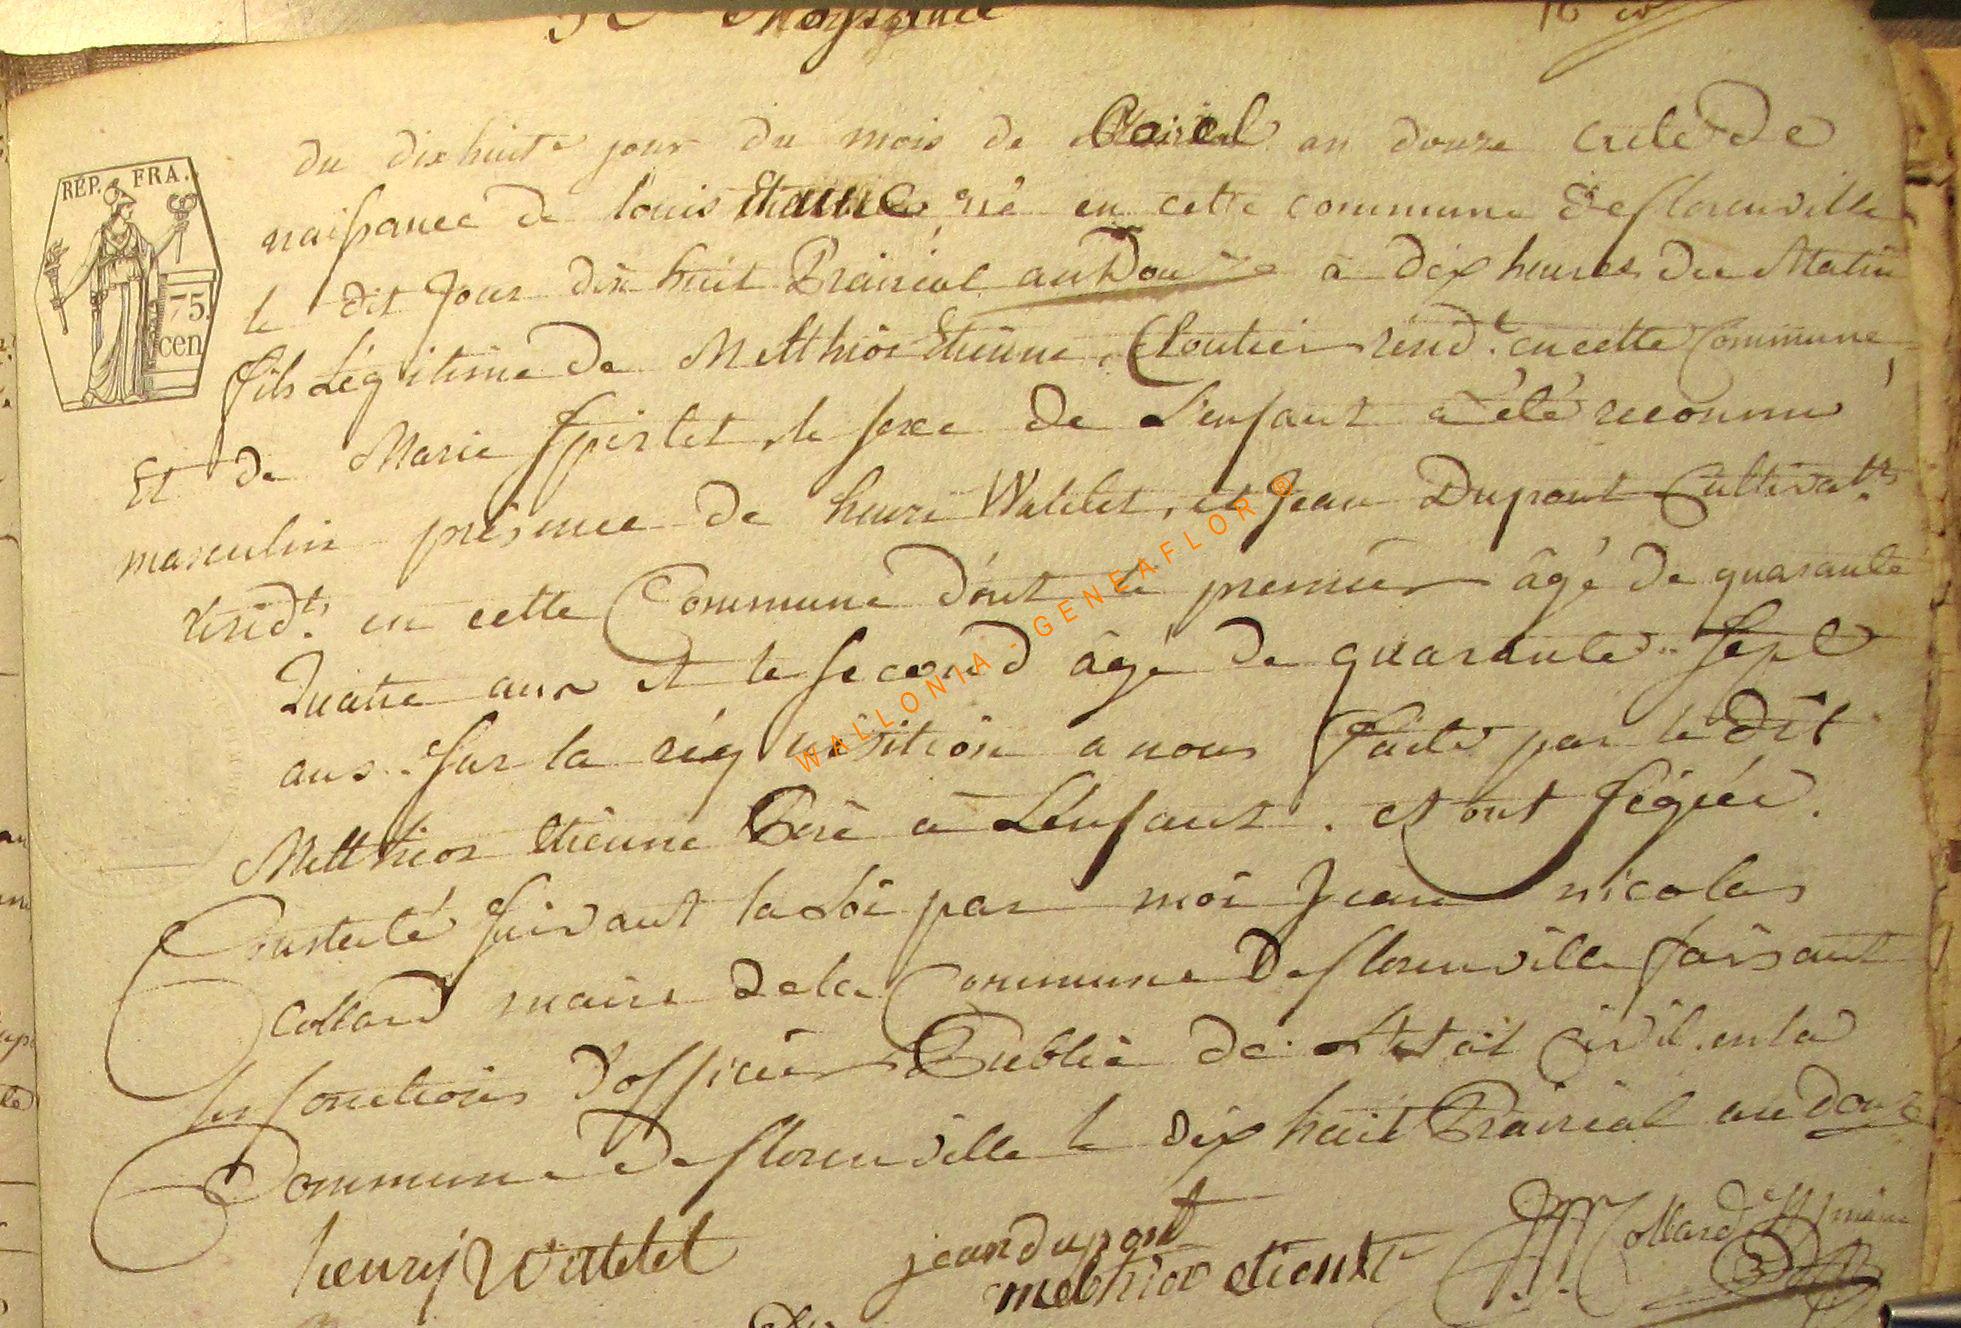 Naissance
RÉP. FRA.
75.
cen
du dixhuite jour du mois de Prairial an douze acte de
naissance de louis Etienne né en cette commune de florenville
le dit Jour dix huit Prairial an Douze à dix heures du Matin
fils Légitime de Melthior Etienne, Cloutier résid.t en cette Commune,
Et de Marie Spirlet, le sexe de L'enfant a été reconnu
masculin présence de henri Watelet, et Jean Dupont Cultivat.rs
résid.ts en cette Commune dont le premier âgé de quarante
Quatre ans et le second âgé de quarante Sept
ans.. Sur la réquisition a nous faite par le dit
Melthior Etienne Perè à L'enfant. et ont signéé.
Constaté suivant la Loi par moi Jean nicolas
Collard maire de la Commune De florenville faisant
les fonctions d'officier Public de L'Etat Civil. en la
Commune De florenville le dix huit Prairial an douze
henrij Watelet
jean dupont
melchior etienne
Collard
WALLONIA - GENEAFLOR ®